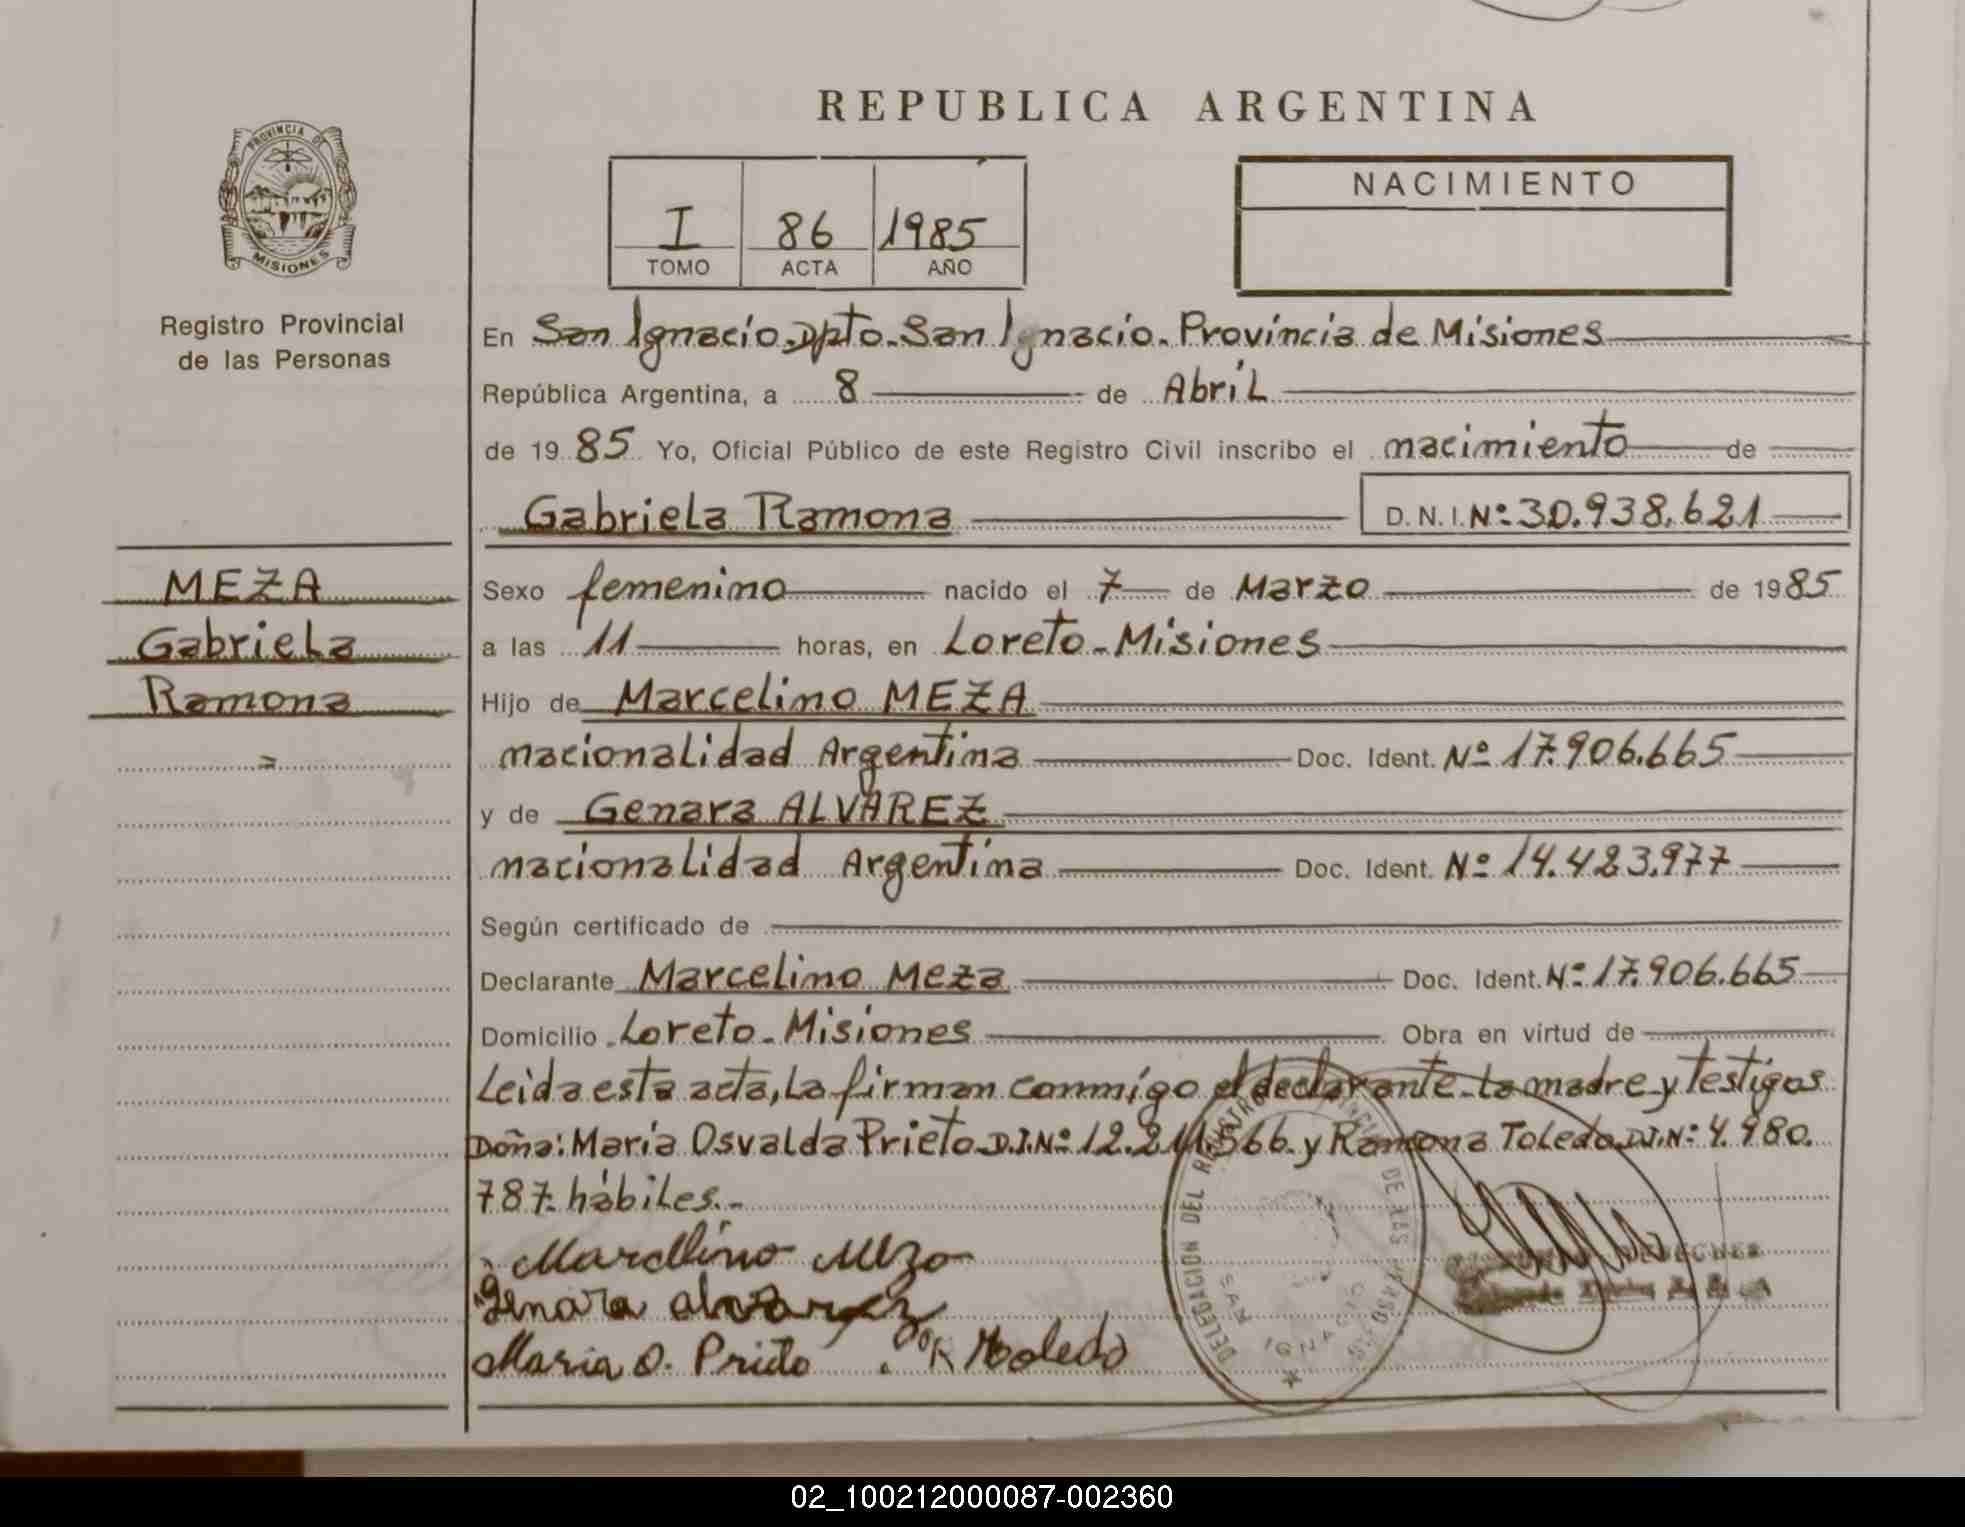 REPUBLICA ARGENTINA
PROVINCIA DE
MISIONES
Registro Provincial
de las Personas
I 86 1985
TOMO ACTA AÑO
NACIMIENTO
En San Ignacio. Dpto. San Ignacio. Provincia de Misiones
República Argentina, a 8 de Abril
de 1985 Yo, Oficial Público de este Registro Civil inscribo el nacimiento de
Gabriela Ramona D.N.I. Nº: 30.938.621
MEZA
Gabriela
Ramona
Sexo femenino nacido el 7 de Marzo de 1985
a las 11 horas, en Loreto - Misiones
Hijo de Marcelino MEZA
nacionalidad Argentina Doc. Ident. Nº 17.906.665
y de Genara ALVAREZ
nacionalidad Argentina Doc. Ident. Nº 14.423.977
Según certificado de
Declarante Marcelino Meza Doc. Ident. Nº: 17.906.665
Domicilio Loreto - Misiones Obra en virtud de
Leida esta acta, la firman conmigo el declarante - la madre y testigos
Doña: María Osvalda Prieto D.I.Nº 12. y Ramona Toledo D.I.N: 4.980.
787. hábiles.-
Marcelino Meza
Genara alvarez
Maria O. Prieto R Toledo
DELEGACION DEL REGISTRO PROVINCIAL DE LAS PERSONAS
SAN IGNACIO
02_100212000087-002360